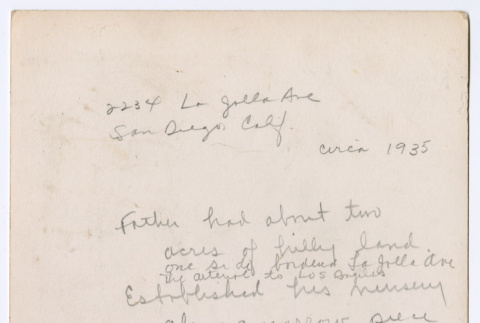 2234 La Jolla Ave
San Diego, Calif.
circa 1935
Father had about two
acres of hilly land.
one side bordered La Jolla Ave
the arterial to Los Angeles
Established his nursery
narrow piece